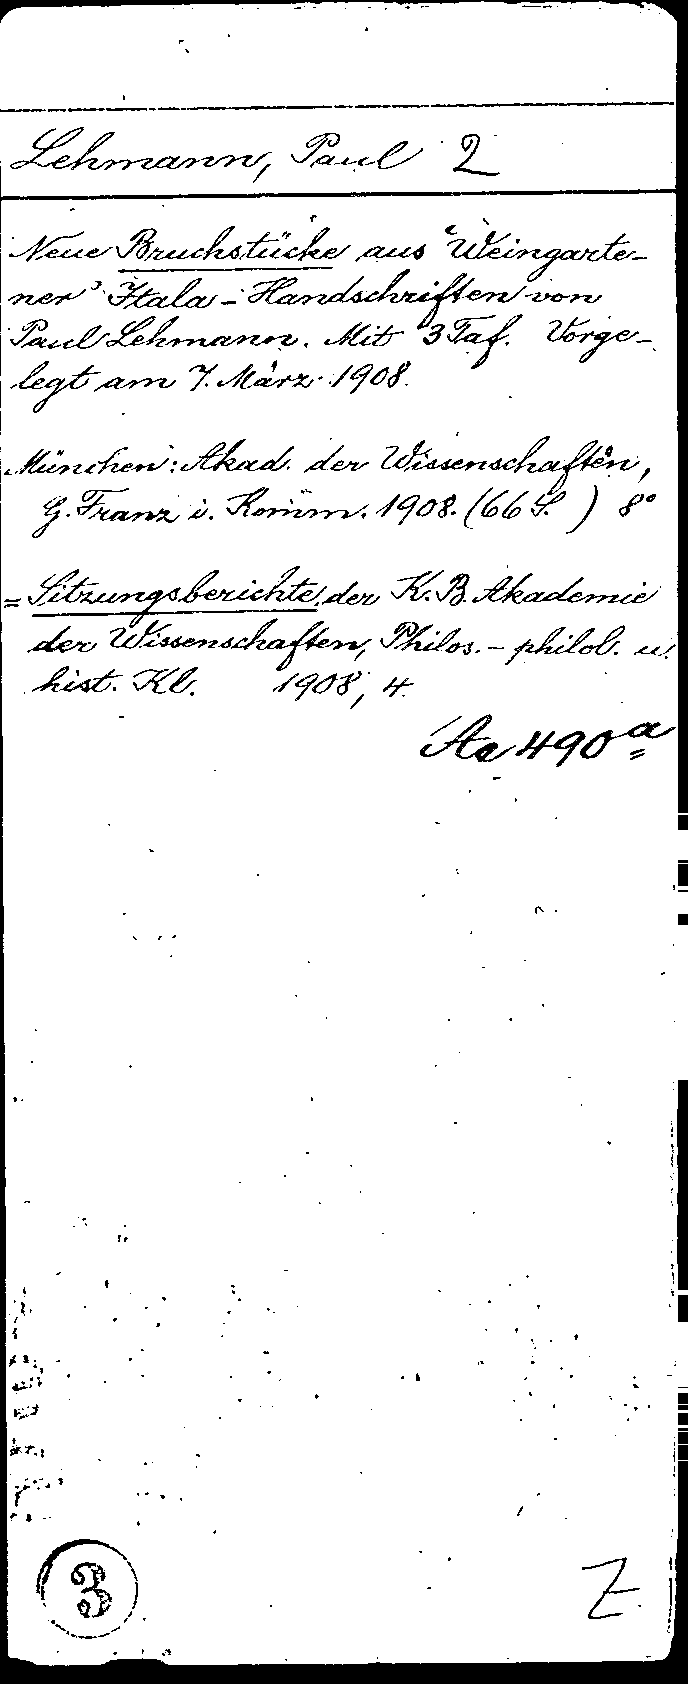 Lehmann, Paul 2
Neue Bruchstücke aus "Weingarte-
ner" Itala-Handschriften von
Paul Lehmann. Mit 3 Taf. Vorge-
legt am 7. März 1908.
München: Akad. der Wissenschaften,
G. Franz i. Komm. 1908. (66 S. ) 8°
= Sitzungsberichte der K. B. Akademie
der Wissenschaften, Philos.-philol. u.
hist. Kl. 1908, 4.
Ac 490a
3
Z